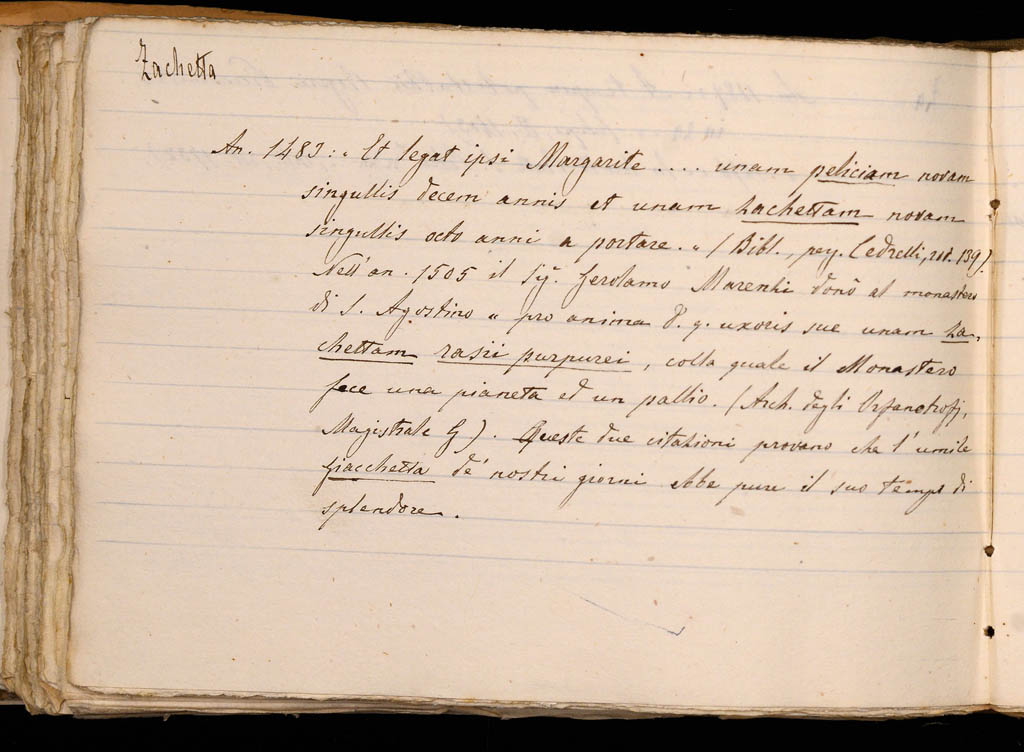 Zachetta
An. 1483: « Et legat ipsi Margarite .... unam peliciam novam
singullis decem annis et unam zachettam novam
singullis octo anni a portare. » (Bibl., peg. Cedrelli, rot. 139).
Nell'an. 1505 il Sig. Gerolamo Marenzi donò al monastero
di S. Agostino « pro anima d. q. uxoris sue unam za-
chettam rasii purpurei, colla quale il Monastero
fece una pianeta ed un pallio. (Arch. degli Orfanotrofj,
Magistrale G). Queste due citazioni provano che l'umile
giacchetta de' nostri giorni ebbe pure il suo tempo di
splendore.